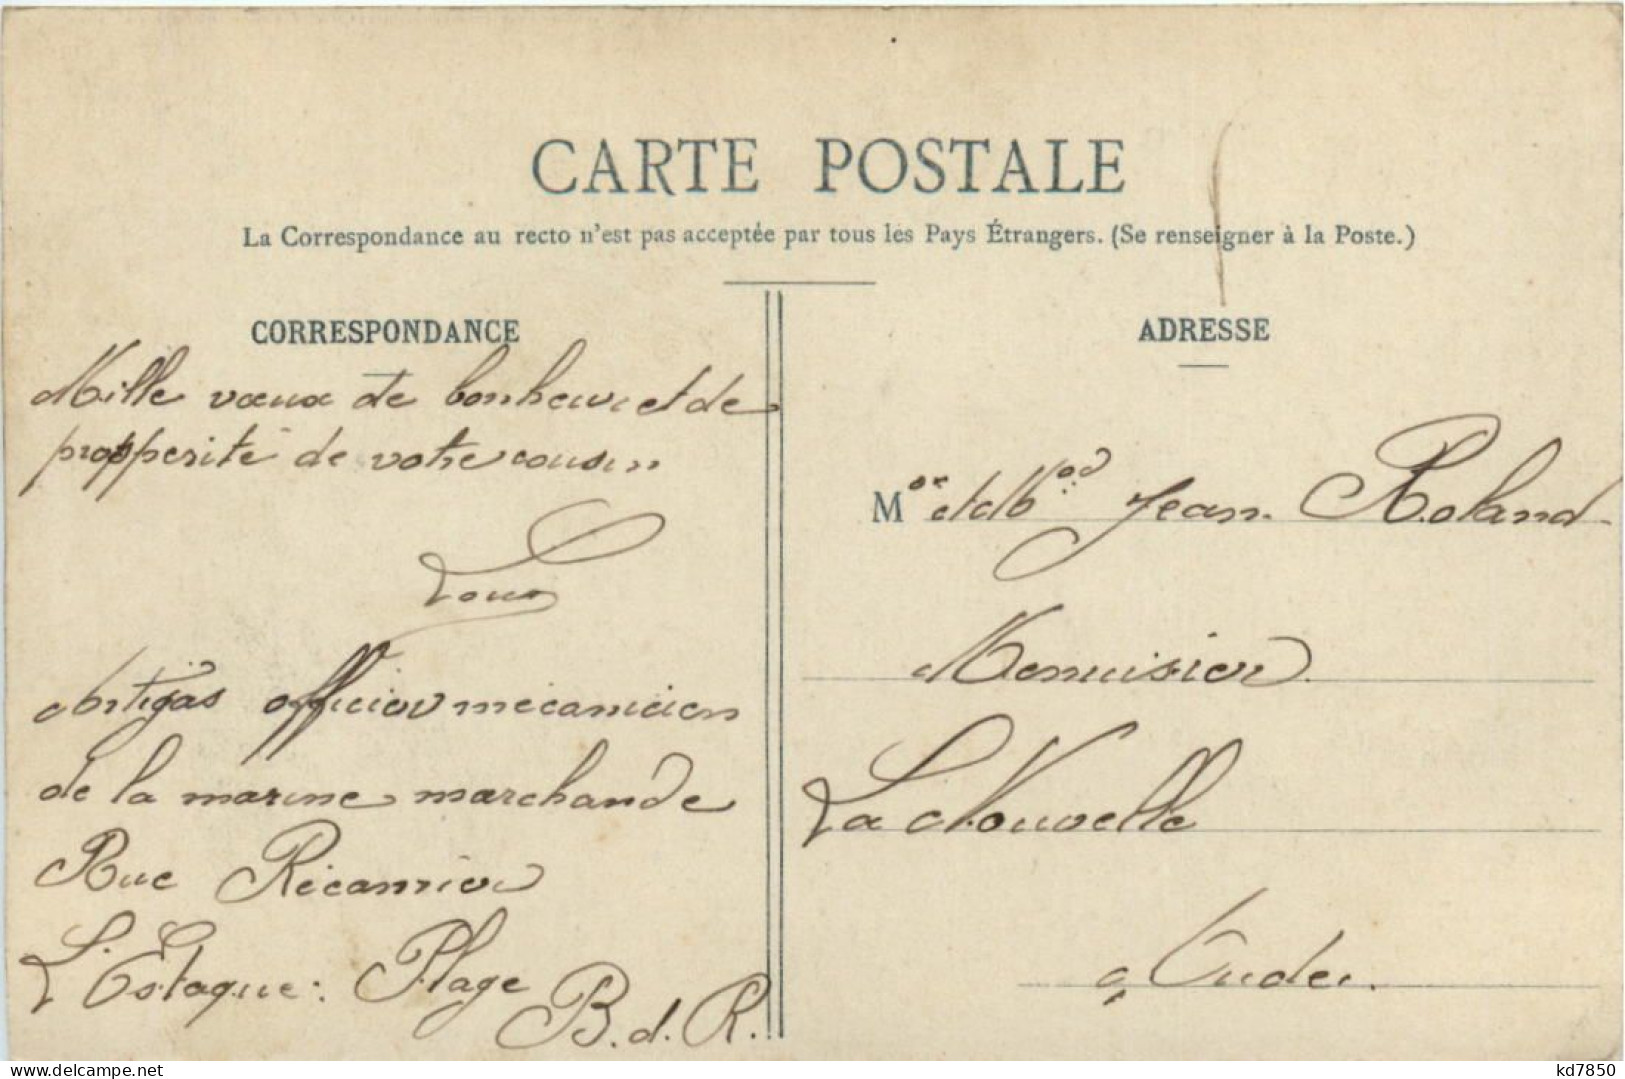 CARTE POSTALE
La Correspondance au recto n'est pas acceptée par tous les Pays Étrangers. (Se renseigner à la Poste.)
CORRESPONDANCE
Mille vœux de bonheur et de
propperité de votre cousin
Louis
Artigas officier mécanicien
de la marine marchande
Rue Récamier
L'Estaque: Plage
B. d. R.
ADRESSE
M et Jean Roland
Menuisier
La Nouvelle
Aude
kd7850